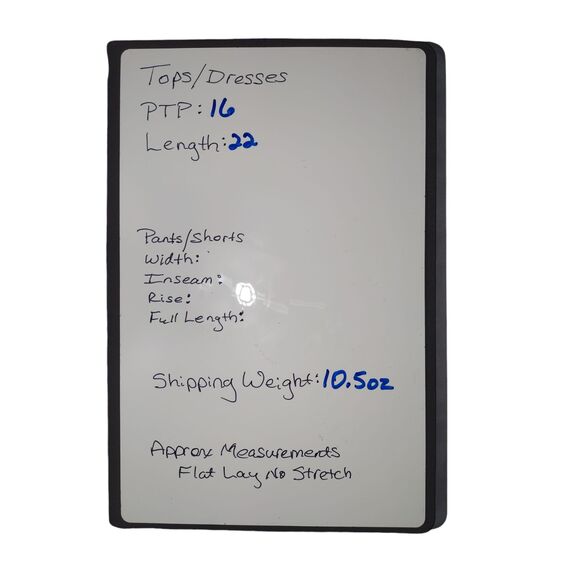 Tops/Dresses
PTP: 16
Length: 22
Pants/Shorts
Width:
Inseam:
Rise:
Full Length:
Shipping Weight: 10.5oz
Approx Measurements
Flat Lay No Stretch